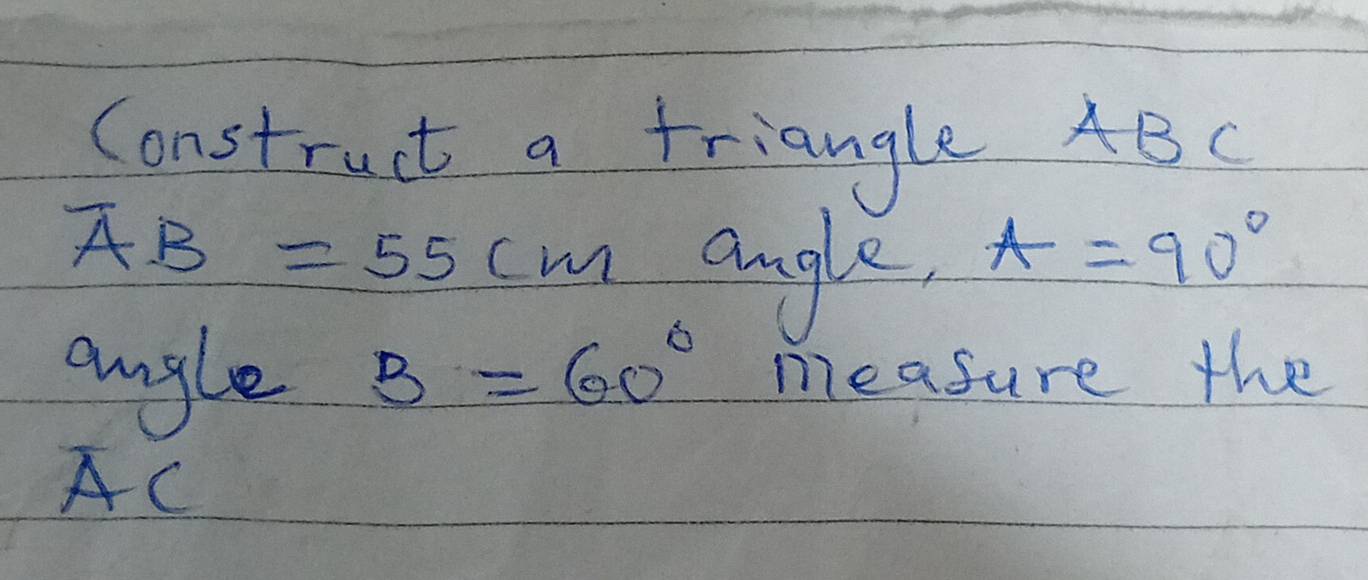 Construct a triangle ABC
A̅B = 55 cm angle, A = 90°
angle B = 60° measure the
A̅C